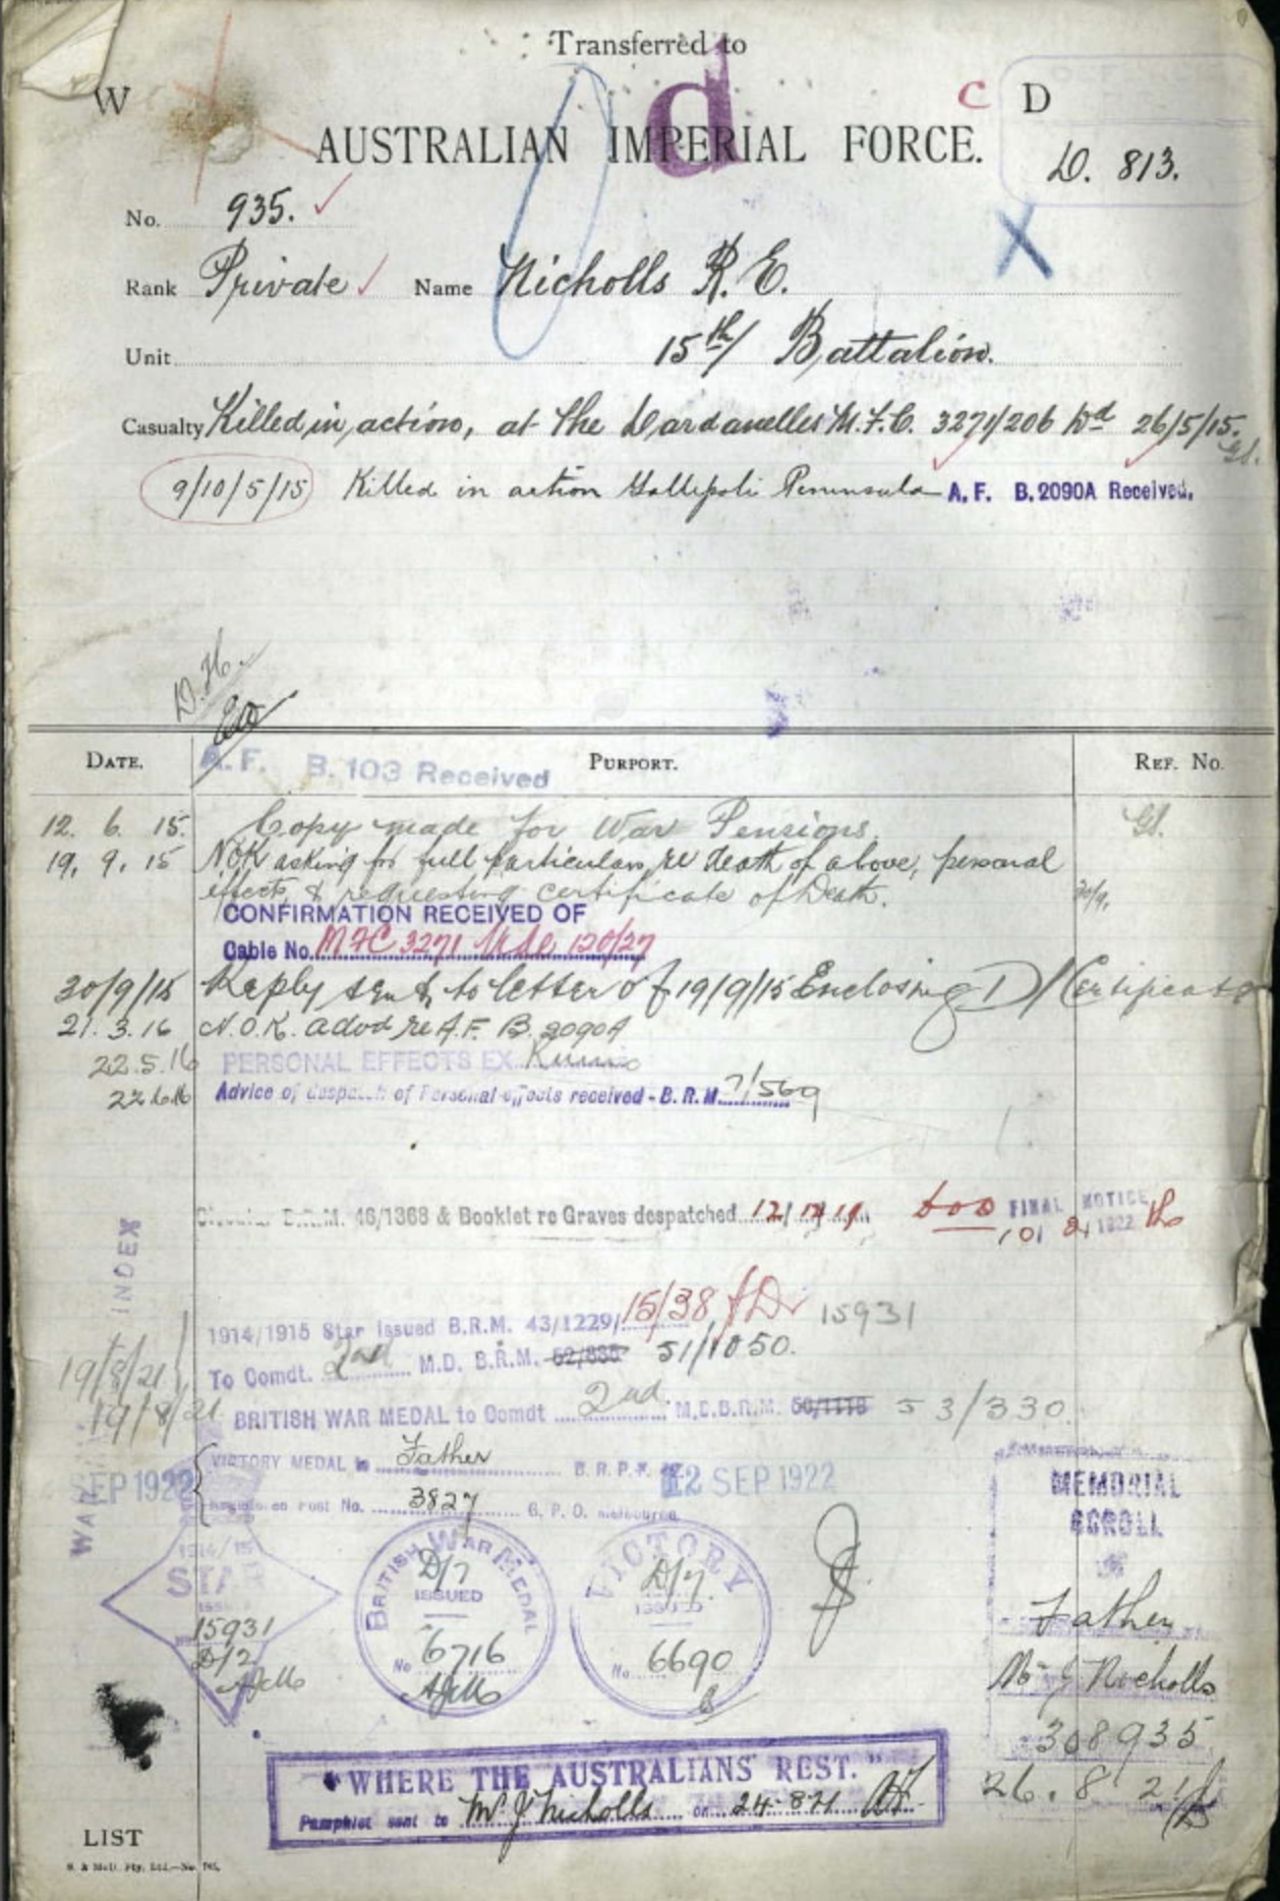 Transferred to
d
W C D
AUSTRALIAN IMPERIAL FORCE.
D. 813.
No. 935.
X
Rank Private Name Nicholls R. E.
Unit 15th/ Battalion.
Casualty Killed in action, at the Dardanelles M.F.C. 3271/206 Dd 26/5/15.
9/10/5/15 Killed in action Gallepoli Peninsula A. F. B.2090A Received.
D.H.
DATE. PURPORT. REF. No.
A. F. B. 103 Received
12. 6. 15. Copy made for War Pensions.
19. 9. 15 NOK asking for full particulars re death of above, personal
effects, & requesting certificate of Death. 30/9.
CONFIRMATION RECEIVED OF
Cable No. MFC 3271 120/27
30/9/15 Reply sent to letter of 19/9/15 Enclosing D/Certificate
21. 3. 16 N.O.K. advd re A.F. B. 2090A
22.5.16 PERSONAL EFFECTS EX
22.6.16 Advice of despatch of Personal effects received - B. R. M. 7/569
Circular B.R.M. 46/1368 & Booklet re Graves despatched
FINAL NOTICE
1922
INDEX
1914/1915 Star issued B.R.M. 43/1229/ 15/38 15931
To Comdt. 2nd M.D. B.R.M. 52/835 51/1050.
19/8/21
19/8/21 BRITISH WAR MEDAL to Comdt 2nd M.D.B.R.M. 53/330
VICTORY MEDAL to Father B. R. P. 12 SEP 1922
SEP 1922
Registered Post No. 3827 G. P. O. Melbourne
MEMORIAL
SCROLL
WAR
1914/15
STAR
15931
D/2
BRITISH WAR MEDAL
D/7
ISSUED
No 6716
VICTORY
D/7.
ISSUED
No. 6690
Father
Mr J Nicholls
308935
26. 8 21
"WHERE THE AUSTRALIANS' REST."
Pamphlet sent to Mr J Nicholls on 24-8-21
LIST